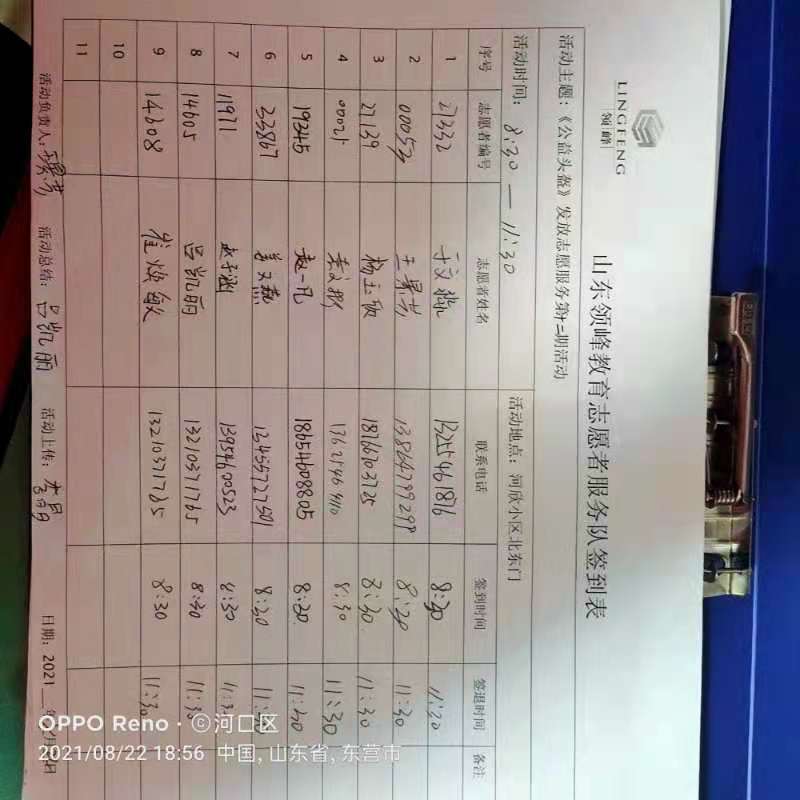 LINGFENG
领峰
山东领峰教育志愿者服务队签到表
活动主题：《公益头盔》发放志愿服务第十二期活动
活动时间： 8:30 — 11:30 活动地点：河欣小区北东门
序号 志愿者编号 志愿者姓名 联系电话 签到时间 签退时间 备注
1 21332 8:30 11:30
2 00053 13864789298 8:30 11:30
3 27139 杨玉欣 18766703725 8:30 11:30
4 00021 8:30 11:30
5 19345 赵一凡 18654608805 8:30 11:30
6 33867 13455727501 8:30 11:30
7 11971 13954600523 8:30
8 14605 吕凯丽 13210371765 8:30 11:30
9 14608 崔焕敏 13210371765 8:30 11:30
10
11
活动负责人： 活动总结：吕凯丽 活动上传： 日期：2021 年
OPPO Reno · ©河口区
2021/08/22 18:56 中国, 山东省, 东营市